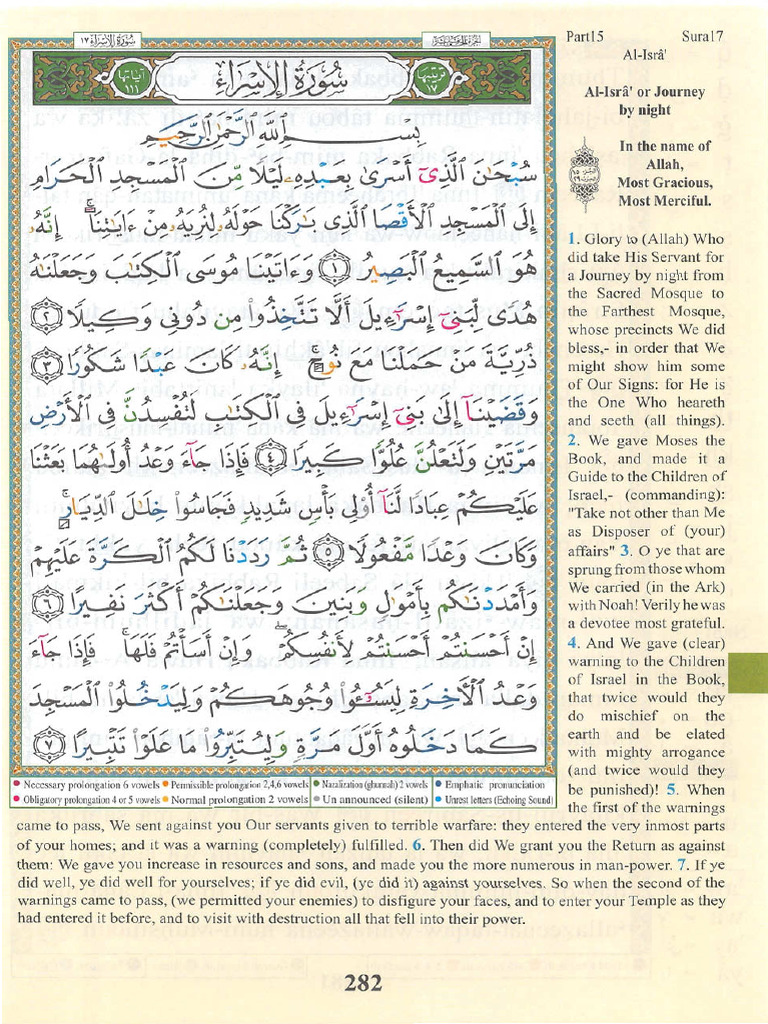 Part15 Sura17
Al-Isrâ'
سُورَةُ الإِسْرَاءِ ١٧
ترتيبها ١٧
سُورَةُ الإِسْرَاءِ
آياتها ١١١
Al-Isrâ' or Journey
by night
In the name of
Allah,
Most Gracious,
Most Merciful.
بِسْمِ ٱللَّهِ ٱلرَّحْمَٰنِ ٱلرَّحِيمِ
سُبْحَٰنَ ٱلَّذِىٓ أَسْرَىٰ بِعَبْدِهِۦ لَيْلًا مِّنَ ٱلْمَسْجِدِ ٱلْحَرَامِ
إِلَى ٱلْمَسْجِدِ ٱلْأَقْصَا ٱلَّذِى بَٰرَكْنَا حَوْلَهُۥ لِنُرِيَهُۥ مِنْ ءَايَٰتِنَآ ۚ إِنَّهُۥ
هُوَ ٱلسَّمِيعُ ٱلْبَصِيرُ ١ وَءَاتَيْنَا مُوسَى ٱلْكِتَٰبَ وَجَعَلْنَٰهُ
هُدًى لِّبَنِىٓ إِسْرَٰٓءِيلَ أَلَّا تَتَّخِذُوا۟ مِن دُونِى وَكِيلًا ٢
ذُرِّيَّةَ مَنْ حَمَلْنَا مَعَ نُوحٍ ۚ إِنَّهُۥ كَانَ عَبْدًا شَكُورًا ٣
وَقَضَيْنَآ إِلَىٰ بَنِىٓ إِسْرَٰٓءِيلَ فِى ٱلْكِتَٰبِ لَتُفْسِدُنَّ فِى ٱلْأَرْضِ
مَرَّتَيْنِ وَلَتَعْلُنَّ عُلُوًّا كَبِيرًا ٤ فَإِذَا جَآءَ وَعْدُ أُولَىٰهُمَا بَعَثْنَا
عَلَيْكُمْ عِبَادًا لَّنَآ أُو۟لِى بَأْسٍ شَدِيدٍ فَجَاسُوا۟ خِلَٰلَ ٱلدِّيَارِ ۚ
وَكَانَ وَعْدًا مَّفْعُولًا ٥ ثُمَّ رَدَدْنَا لَكُمُ ٱلْكَرَّةَ عَلَيْهِمْ
وَأَمْدَدْنَٰكُم بِأَمْوَٰلٍ وَبَنِينَ وَجَعَلْنَٰكُمْ أَكْثَرَ نَفِيرًا ٦
إِنْ أَحْسَنتُمْ أَحْسَنتُمْ لِأَنفُسِكُمْ ۖ وَإِنْ أَسَأْتُمْ فَلَهَا ۚ فَإِذَا جَآءَ
وَعْدُ ٱلْءَاخِرَةِ لِيَسُۥٓـُٔوا۟ وُجُوهَكُمْ وَلِيَدْخُلُوا۟ ٱلْمَسْجِدَ
كَمَا دَخَلُوهُ أَوَّلَ مَرَّةٍ وَلِيُتَبِّرُوا۟ مَا عَلَوْا۟ تَتْبِيرًا ٧
Necessary prolongation 6 vowels Permissible prolongation 2,4,6 vowels Nazalization (ghunnah) 2 vowels Emphatic pronunciation
Obligatory prolongation 4 or 5 vowels Normal prolongation 2 vowels Un announced (silent) Unrest letters (Echoing Sound)
1. Glory to (Allah) Who
did take His Servant for
a Journey by night from
the Sacred Mosque to
the Farthest Mosque,
whose precincts We did
bless,- in order that We
might show him some
of Our Signs: for He is
the One Who heareth
and seeth (all things).
2. We gave Moses the
Book, and made it a
Guide to the Children of
Israel,- (commanding):
"Take not other than Me
as Disposer of (your)
affairs" 3. O ye that are
sprung from those whom
We carried (in the Ark)
with Noah! Verily he was
a devotee most grateful.
4. And We gave (clear)
warning to the Children
of Israel in the Book,
that twice would they
do mischief on the
earth and be elated
with mighty arrogance
(and twice would they
be punished)! 5. When
the first of the warnings
came to pass, We sent against you Our servants given to terrible warfare: they entered the very inmost parts
of your homes; and it was a warning (completely) fulfilled. 6. Then did We grant you the Return as against
them: We gave you increase in resources and sons, and made you the more numerous in man-power. 7. If ye
did well, ye did well for yourselves; if ye did evil, (ye did it) against yourselves. So when the second of the
warnings came to pass, (we permitted your enemies) to disfigure your faces, and to enter your Temple as they
had entered it before, and to visit with destruction all that fell into their power.
282